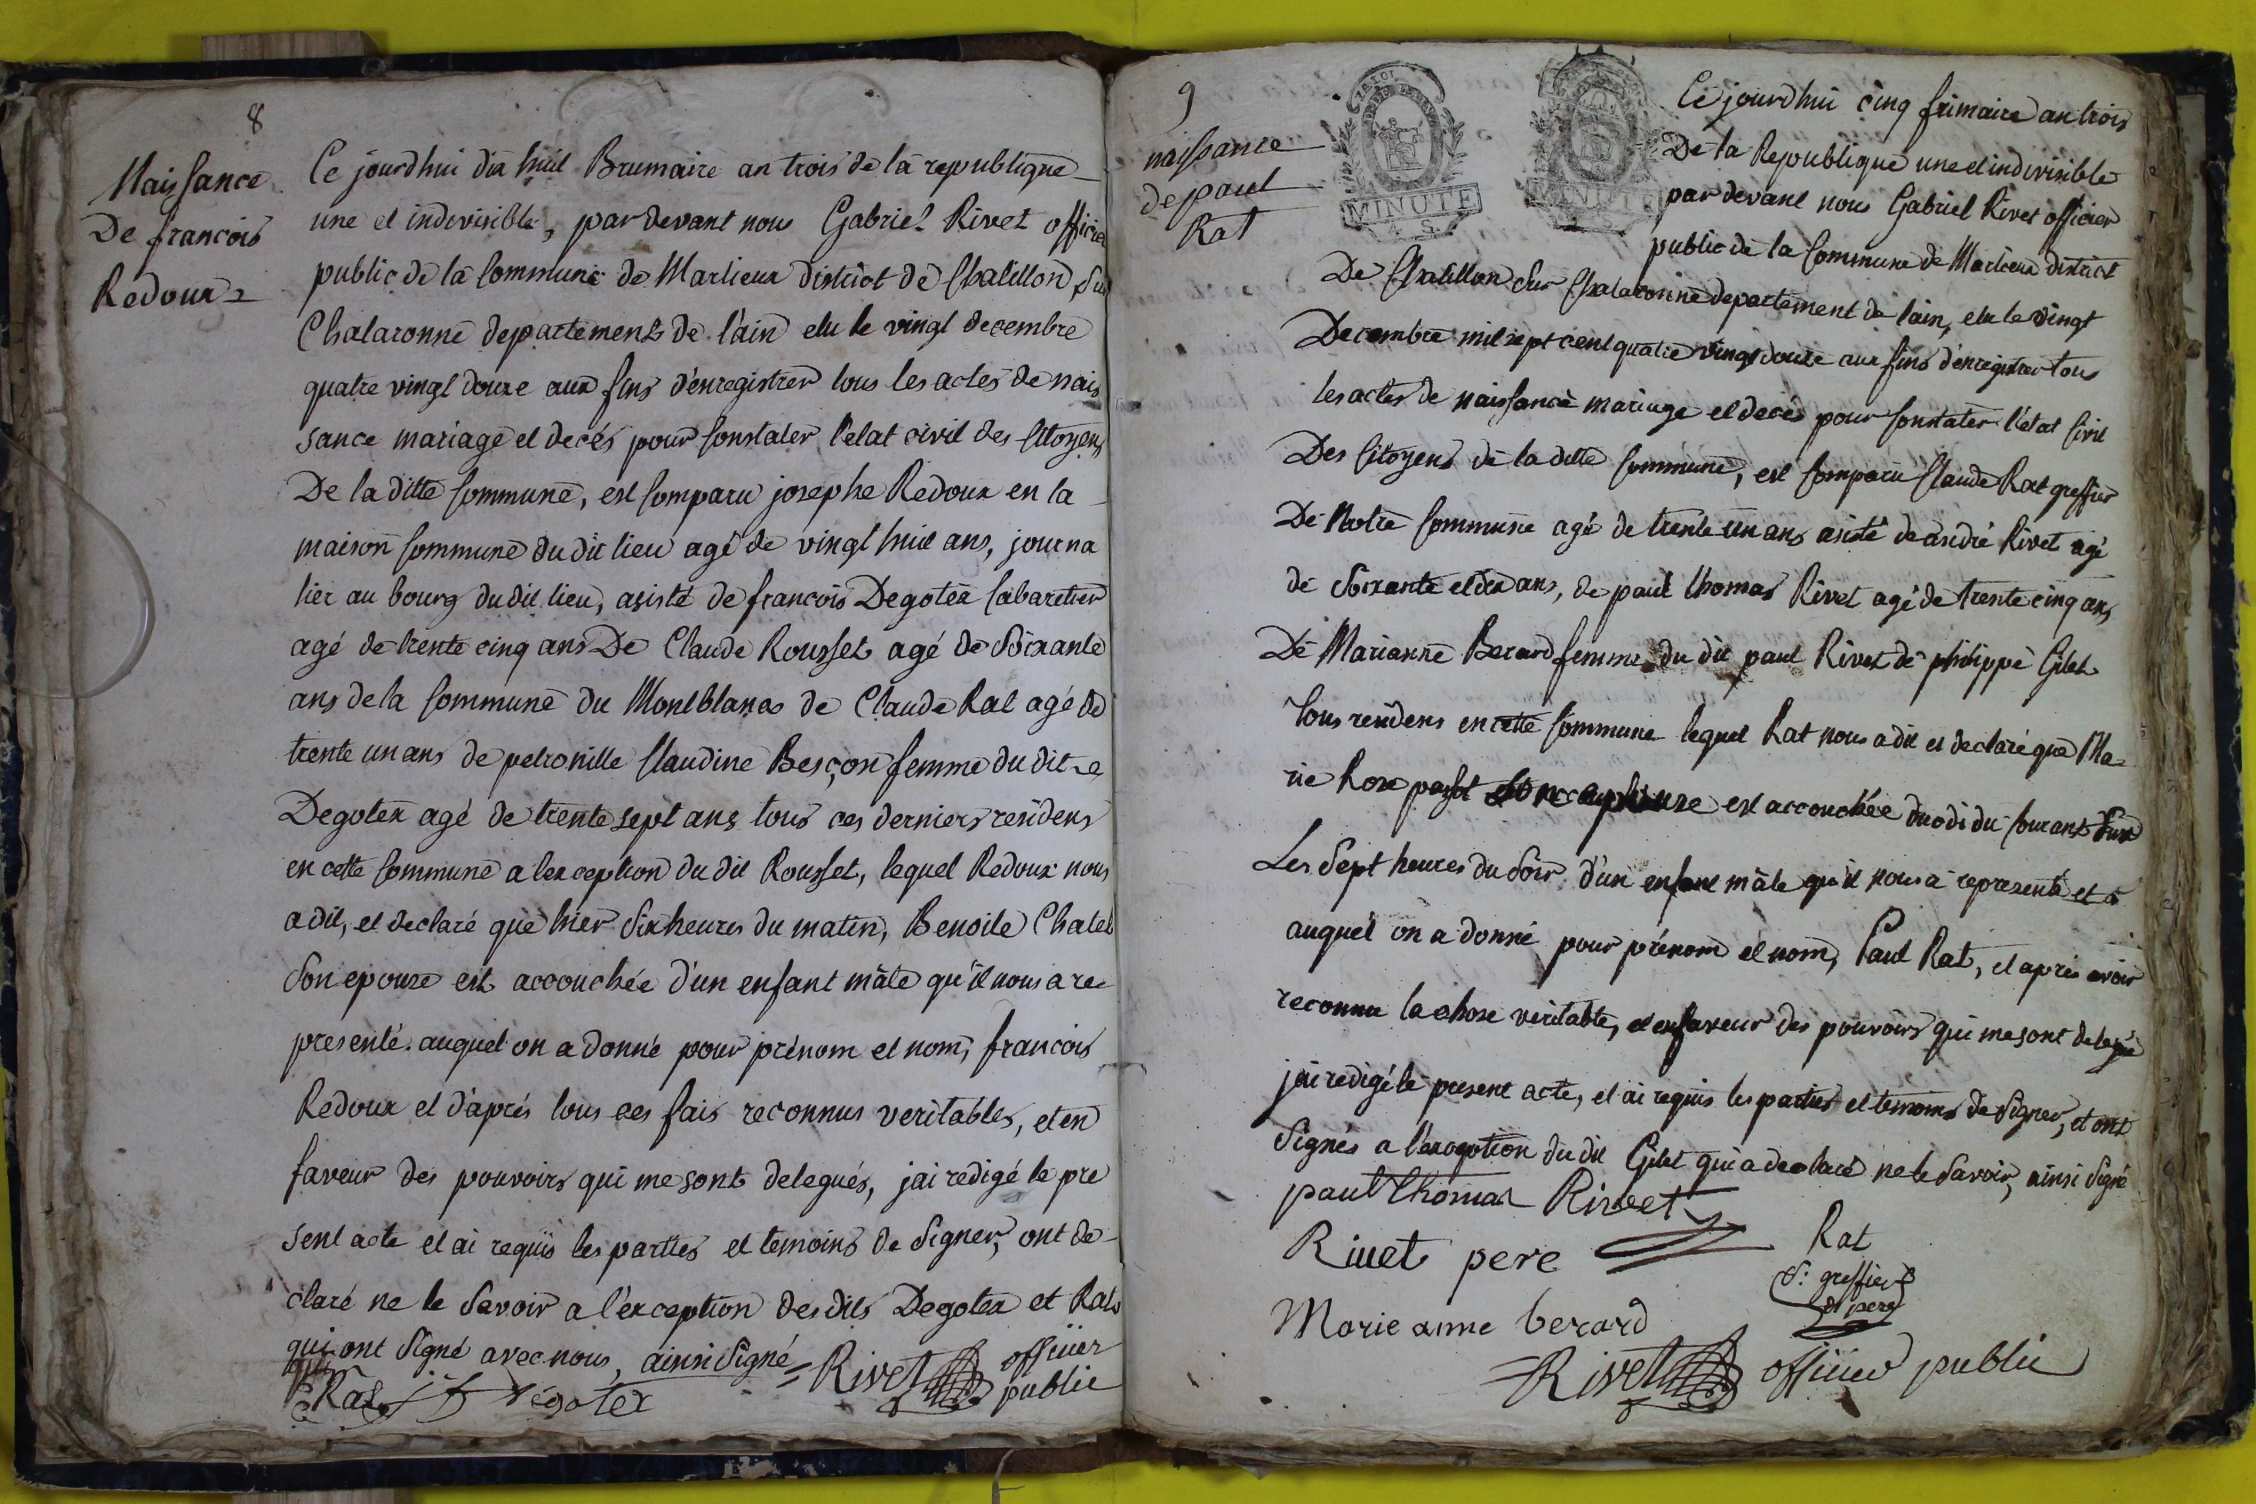 8
Naissance
De francois
Redoux
Ce jourdhui dix huit Brumaire an trois de la republique
une et indivisible, par devant nous Gabriel Rivet officier
public de la Commune de Marlieux district de Chatillon sur
Chalaronne departements de l'ain elu le vingt decembre
quatre vingt douze aux fins d'enregistrer tous les actes de nais
sance mariage et decés pour Constater l'etat civil des Citoyens
De la ditte Commune, est Comparu josephe Redoux en la
maison Commune du dit lieu agé de vingt huit ans, journa
lier au bourg du dit lieu, asisté de francois Degotex Cabaretier
agé de trente cinq ans De Claude Rousset agé de Soixante
ans de la Commune du Montblanc de Claude Rat agé de
trente un ans de petronille Claudine Besçon femme du dit
Degotex agé de trente sept ans tous ces derniers residens
en cette Commune a lexception du dit Rousset, lequel Redoux nous
a dit, et declaré que hier Six heures du matin, Benoite Chatel
Son epouze est accouchée d'un enfant mâle qu'il nous a re
presenté auquel on a donné pour prénom et nom, francois
Redoux et d'aprés tous ces fais reconnus veritables, et en
faveur des pouvoirs qui me sont delegués, jai redigé le pre
sent acte et ai requis les parties et temoins de Signer, ont de
claré ne le Savoir a l'exception des dits Degotex et Rat
qui ont Signé avec nous, ainsi Signé
Rivet officier
public
Rat
Dégotex
9
naissance
de paul
Rat
MINUTE
4 S.
MINUTE
Ce jourdhui cinq frimaire an trois
De la Republique une et indivisible
par devant nous Gabriel Rivet officier
public de la Commune de Marlieux district
De Chatillon sur Chalaronne departement de lain, elu le vingt
Decembre mil sept cent quatre vingt douze aux fins d'enregistrer tous
les actes de naissance mariage et decés pour Constater l'état Civil
Des Citoyens de la ditte Commune, est Comparu Claude Rat greffier
De Notre Commune agé de trente un ans asisté de andré Rivet agé
de Soixante et dix ans, de paul thomas Rivet agé de trente cinq ans
De Marianne Berard femme du dit paul Rivet de philippe Gilet
Tous residens en cette Commune lequel Rat nous a dit et declaré que Ma
rie Rose Son epouze est accouchée duodi du Courant Sur
Les Sept heures du Soir d'un enfant mâle qu'il nous a representé et
auquel on a donné pour prénom et nom, Paul Rat, et aprés avoir
reconnu la chose veritable, et en faveur des pouvoirs qui me sont delegué
jai redigé le present acte, et ai requis les parties et temoins de Signer, et ont
Signés a l'exception du dit Gilet qui a declaré ne le Savoir, ainsi Signé
paul Thomas Rivet
Rivet pere
Rat
S. greffier
et pere
Marie anne berard
Rivet officier public